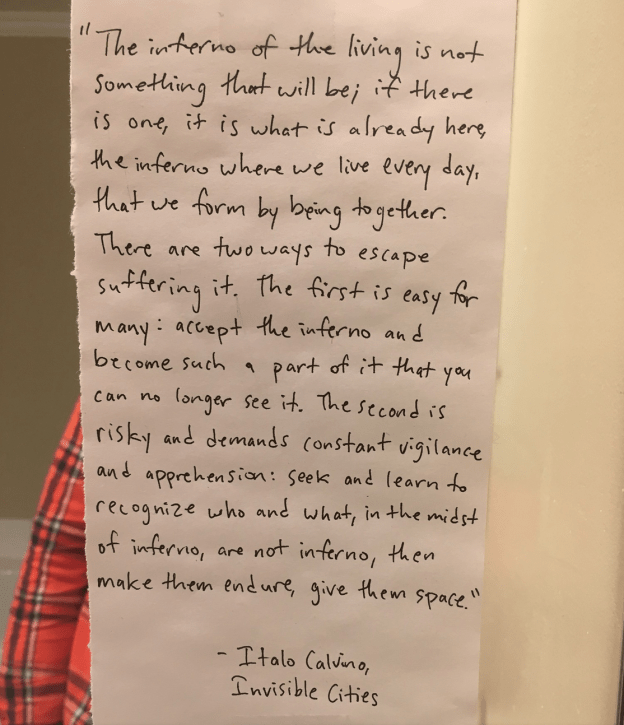 "The inferno of the living is not
something that will be; if there
is one, it is what is already here,
the inferno where we live every day,
that we form by being together.
There are two ways to escape
suffering it. The first is easy for
many: accept the inferno and
become such a part of it that you
can no longer see it. The second is
risky and demands constant vigilance
and apprehension: seek and learn to
recognize who and what, in the midst
of inferno, are not inferno, then
make them endure, give them space."
- Italo Calvino,
Invisible Cities